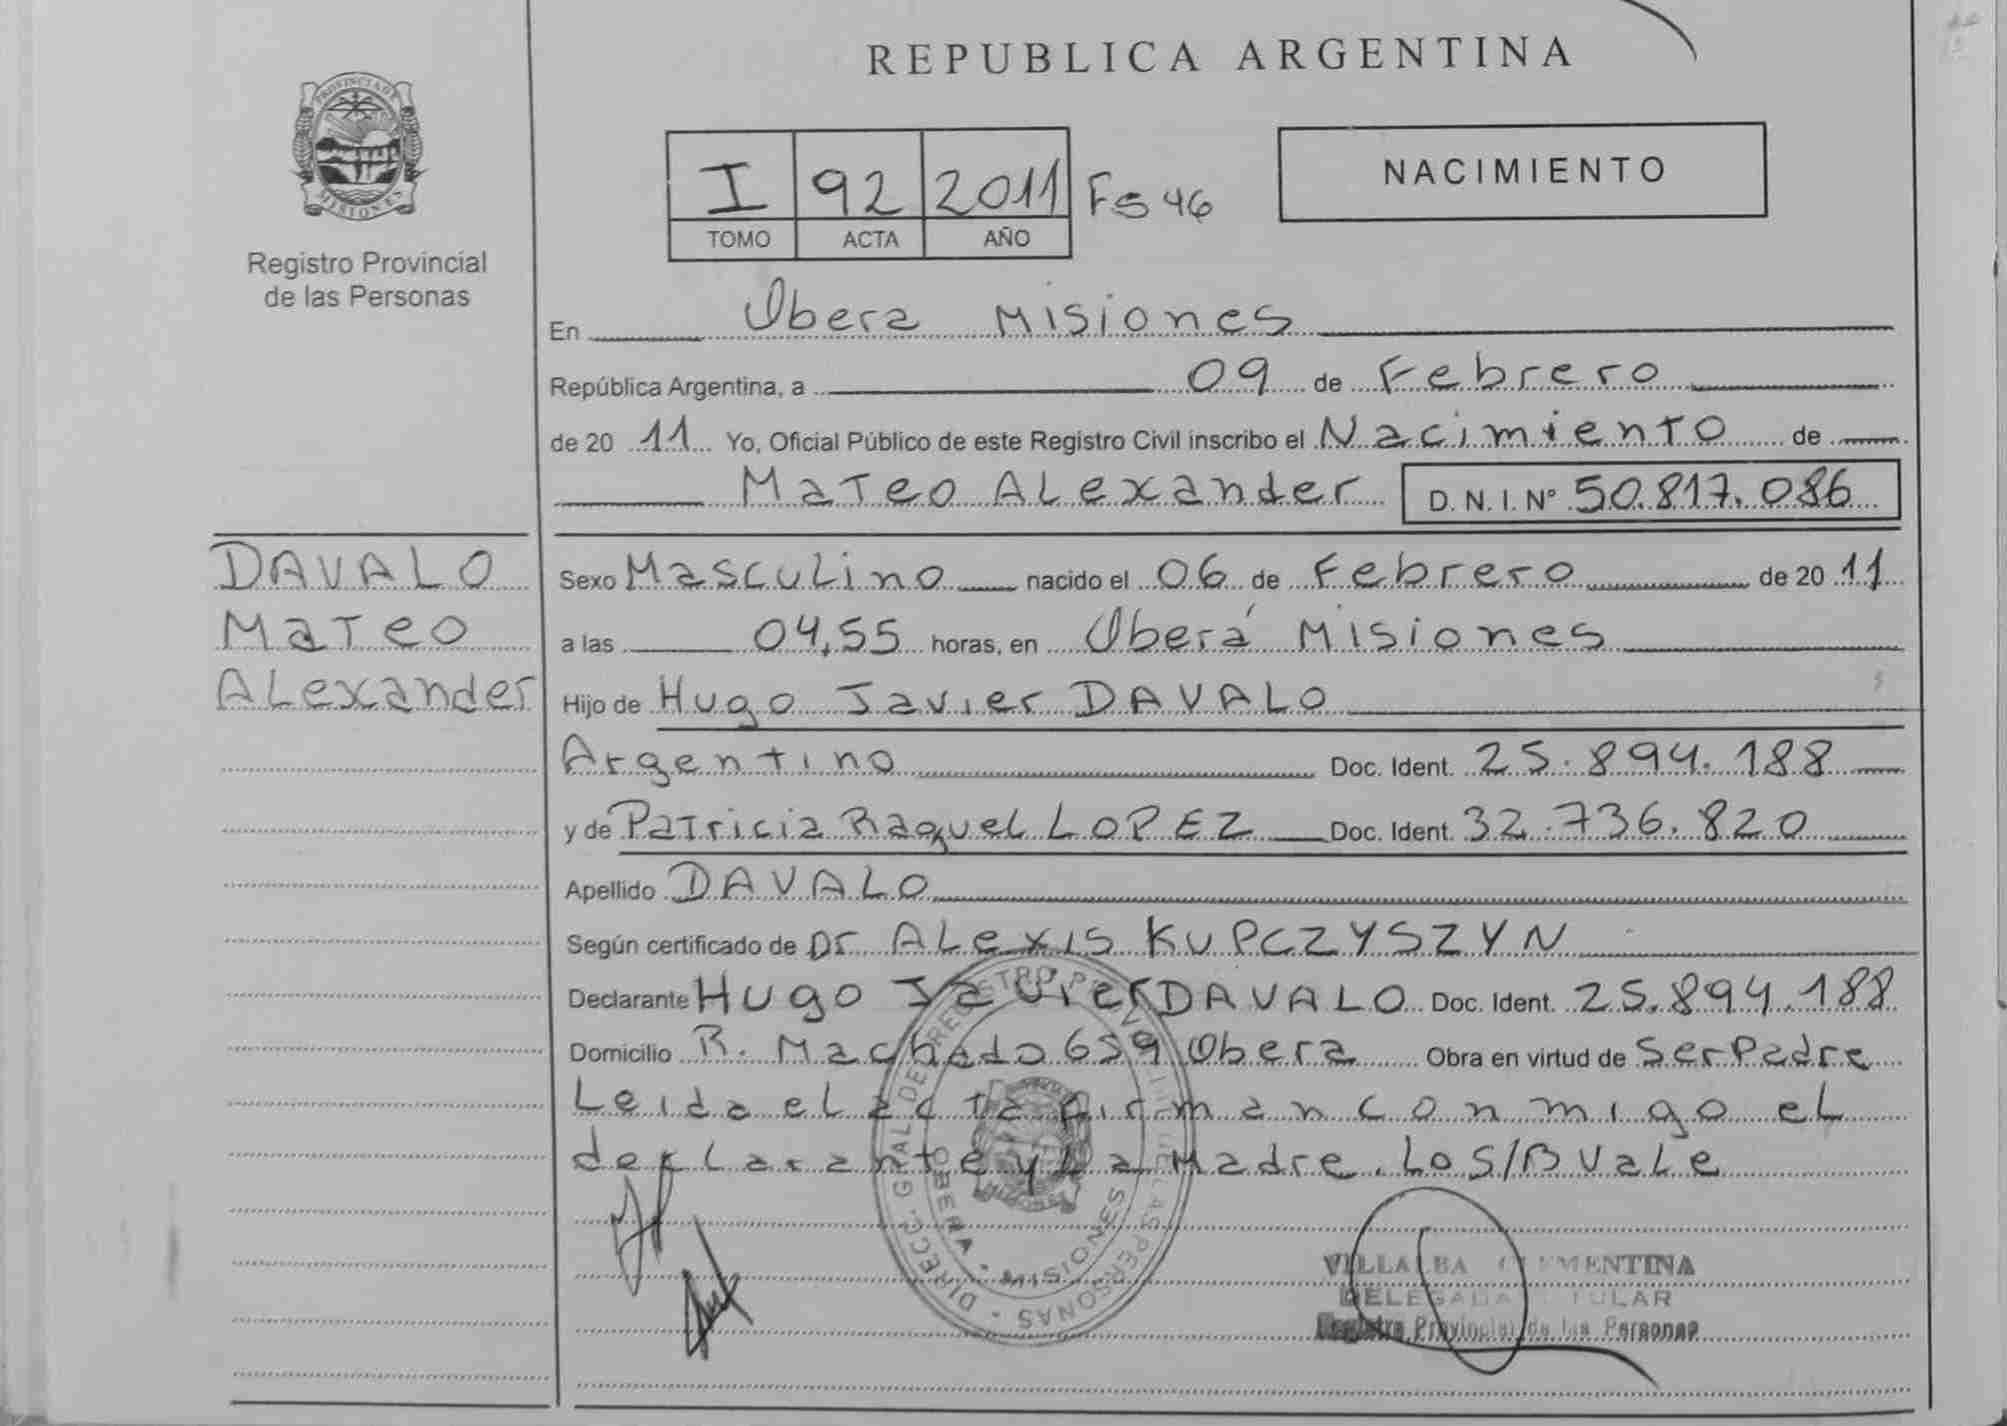 REPUBLICA ARGENTINA
PROVINCIA DE MISIONES
Registro Provincial
de las Personas
I 92 2011 Fs 46
TOMO ACTA AÑO
NACIMIENTO
En Obera Misiones
República Argentina, a 09 de Febrero
de 20 11 Yo, Oficial Público de este Registro Civil inscribo el Nacimiento de
Mateo Alexander D. N. I. Nº 50.817.086
DAVALO
Mateo
Alexander
Sexo Masculino nacido el 06 de Febrero de 20 11
a las 04,55 horas, en Oberá Misiones
Hijo de Hugo Javier DAVALO
Argentino Doc. Ident. 25.894.188
y de Patricia Raquel LOPEZ Doc. Ident. 32.736.820
Apellido DAVALO
Según certificado de Dr ALexis KUPCZYSZYN
Declarante Hugo Javier DAVALO Doc. Ident. 25.894.188
Domicilio R. Machado 659 Obera Obra en virtud de Ser Padre
Leida el acta firman conmigo el
declarante y La Madre. Lo S/B VaLe
DIRECC. GRAL. DEL REGISTRO PROVINCIAL DE LAS PERSONAS
OBERA - MISIONES
VILLALBA CLEMENTINA
DELEGADA TITULAR
Registro Provincial de las Personas